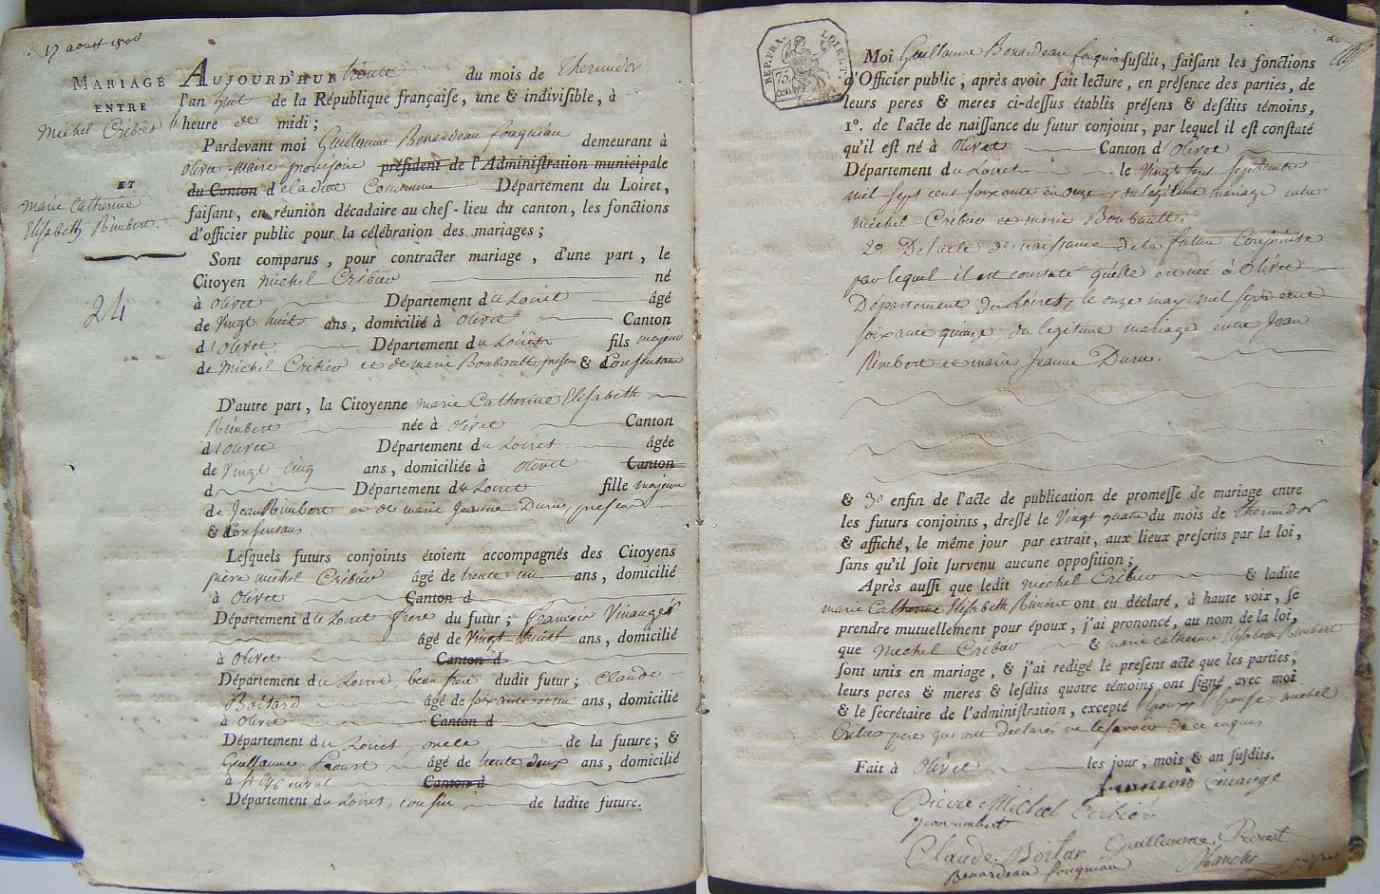 17 aoust 1808
MARIAGE
ENTRE
Michel Cribier
ET
marie Catherine
Elisabeth Rimbert
24
AUJOURD'HUI trente du mois de thermidor
l'an huit de la République françaiſe, une & indiviſible, à
heure de midi;
Pardevant moi Guillaume Benardeau fouquiau demeurant à
olivet maire provisoire préſident de l'Adminiſtration municipale
du Canton d'eladitte Commune Département du Loiret,
faiſant, en réunion décadaire au chef-lieu du canton, les fonctions
d'officier public pour la célébration des mariages;
Sont comparus, pour contracter mariage, d'une part, le
Citoyen michel Cribier né
à olivet Département du Loiret âgé
de Vingt huit ans, domicilié à olivet Canton
d'olivet Département du Loiret fils majeur
de Michel Cribier et de marie Boubault present & Consentant
D'autre part, la Citoyenne marie Catherine Elisabeth
Rimbert née à olivet Canton
d'olivet Département du Loiret âgée
de Vingt cinq ans, domiciliée à olivet Canton
d Département du Loiret fille majeure
de Jean Rimbert et de marie Jeanne Durue, present
& Consentans
Leſquels futurs conjoints étoient accompagnés des Citoyens
pierre michel Cribier âgé de trente un ans, domicilié
à Olivet Canton d
Département du Loiret frere du futur; francois Vinauger
âgé de Vingt huit ans, domicilié
à olivet Canton d
Département du Loiret, beau frere dudit futur; Claude
Boitard âgé de soixante ans, domicilié
à olivet Canton d
Département du Loiret, oncle de la future; &
Guillaume Proust âgé de trente deux ans, domicilié
à Canton d
Département du Loiret, cousin de ladite future.
REP. FRA. LOIRET
Moi Guillaume Benardeau fouquiau ſuſdit, faiſant les fonctions
d'Officier public, après avoir fait lecture, en préſence des parties, de
leurs peres & meres ci-deſſus établis préſens & deſdits témoins,
1°. de l'acte de naiſſance du futur conjoint, par lequel il eſt conſtaté
qu'il eſt né à olivet Canton d'olivet
Département du Loiret le Vingt sept septembre
mil sept cent soixante onze, du legitime mariage entre
Michel Cribier et marie Boubault.
2° De l'acte de naissance de la future Conjointe
par lequel il est constaté qu'elle est née à Olivet
Département du Loiret, le onze may mil sept cent
soixante quinze, du legitime mariage entre Jean
Rimbert et marie Jeanne Durue.
& 3° enfin de l'acte de publication de promeſſe de mariage entre
les futurs conjoints, dreſſé le Vingt quatre du mois de thermidor
& affiché, le même jour par extrait, aux lieux preſcrits par la loi,
ſans qu'il ſoit ſurvenu aucune oppoſition;
Après auſſi que ledit michel Cribier & ladite
marie Catherine Elisabeth Rimbert ont eu déclaré, à haute voix, ſe
prendre mutuellement pour époux, j'ai prononcé, au nom de la loi,
que Michel Cribier & marie Catherine Elisabeth Rimbert
ſont unis en mariage, & j'ai redigé le preſent acte que les parties,
leurs peres & meres & leſdits quatre témoins ont ſigné avec moi
& le ſecrétaire de l'adminiſtration, excepté michel
Cribier pere qui ont déclarés ne le savoir de ce enquis
Fait à Olivet les jour, mois & an ſuſdits.
francois vinauge
Pierre Michel Cribier
Jean rimbert
Claude Boitar Guillaume Proust
Benardeau fouquiau Blanche